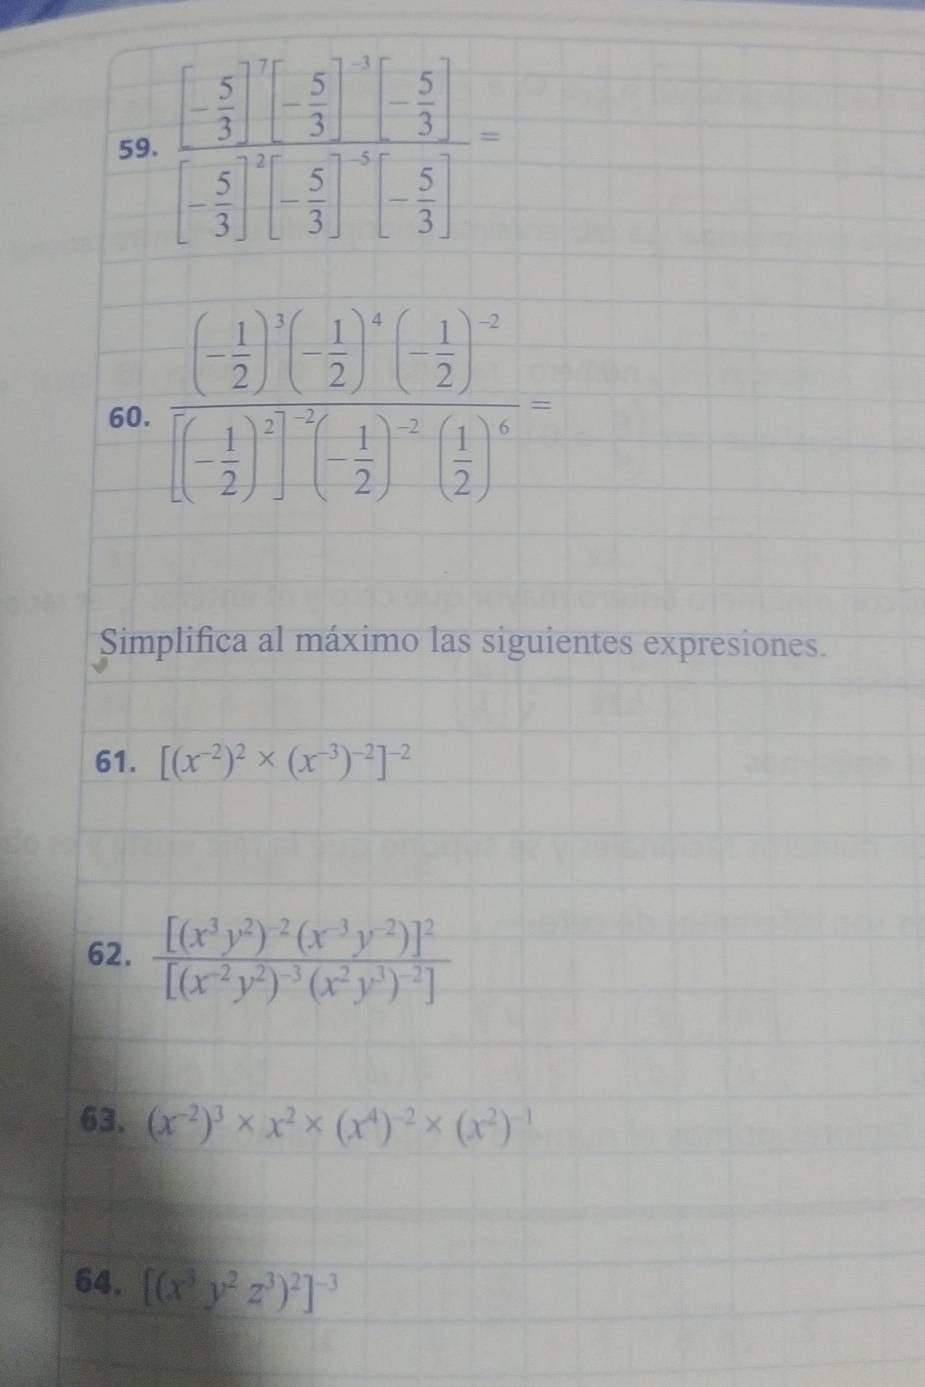 59. \frac{\left[-\frac{5}{3}\right]^{7}\left[-\frac{5}{3}\right]^{-3}\left[-\frac{5}{3}\right]}{\left[-\frac{5}{3}\right]^{2}\left[-\frac{5}{3}\right]^{-5}\left[-\frac{5}{3}\right]} =
60. \frac{\left(-\frac{1}{2}\right)^{3}\left(-\frac{1}{2}\right)^{4}\left(-\frac{1}{2}\right)^{-2}}{\left[\left(-\frac{1}{2}\right)^{2}\right]^{-2}\left(-\frac{1}{2}\right)^{-2}\left(\frac{1}{2}\right)^{6}} =
Simplifica al máximo las siguientes expresiones.
61. [(x^{-2})^{2} × (x^{-3})^{-2}]^{-2}
62. \frac{[(x^{3}y^{2})^{-2}(x^{-3}y^{-2})]^{2}}{[(x^{-2}y^{2})^{-3}(x^{2}y^{3})^{-2}]}
63. (x^{-2})^{3} × x^{2} × (x^{4})^{-2} × (x^{2})^{-1}
64. [(x^{3} y^{2} z^{3})^{2}]^{-3}